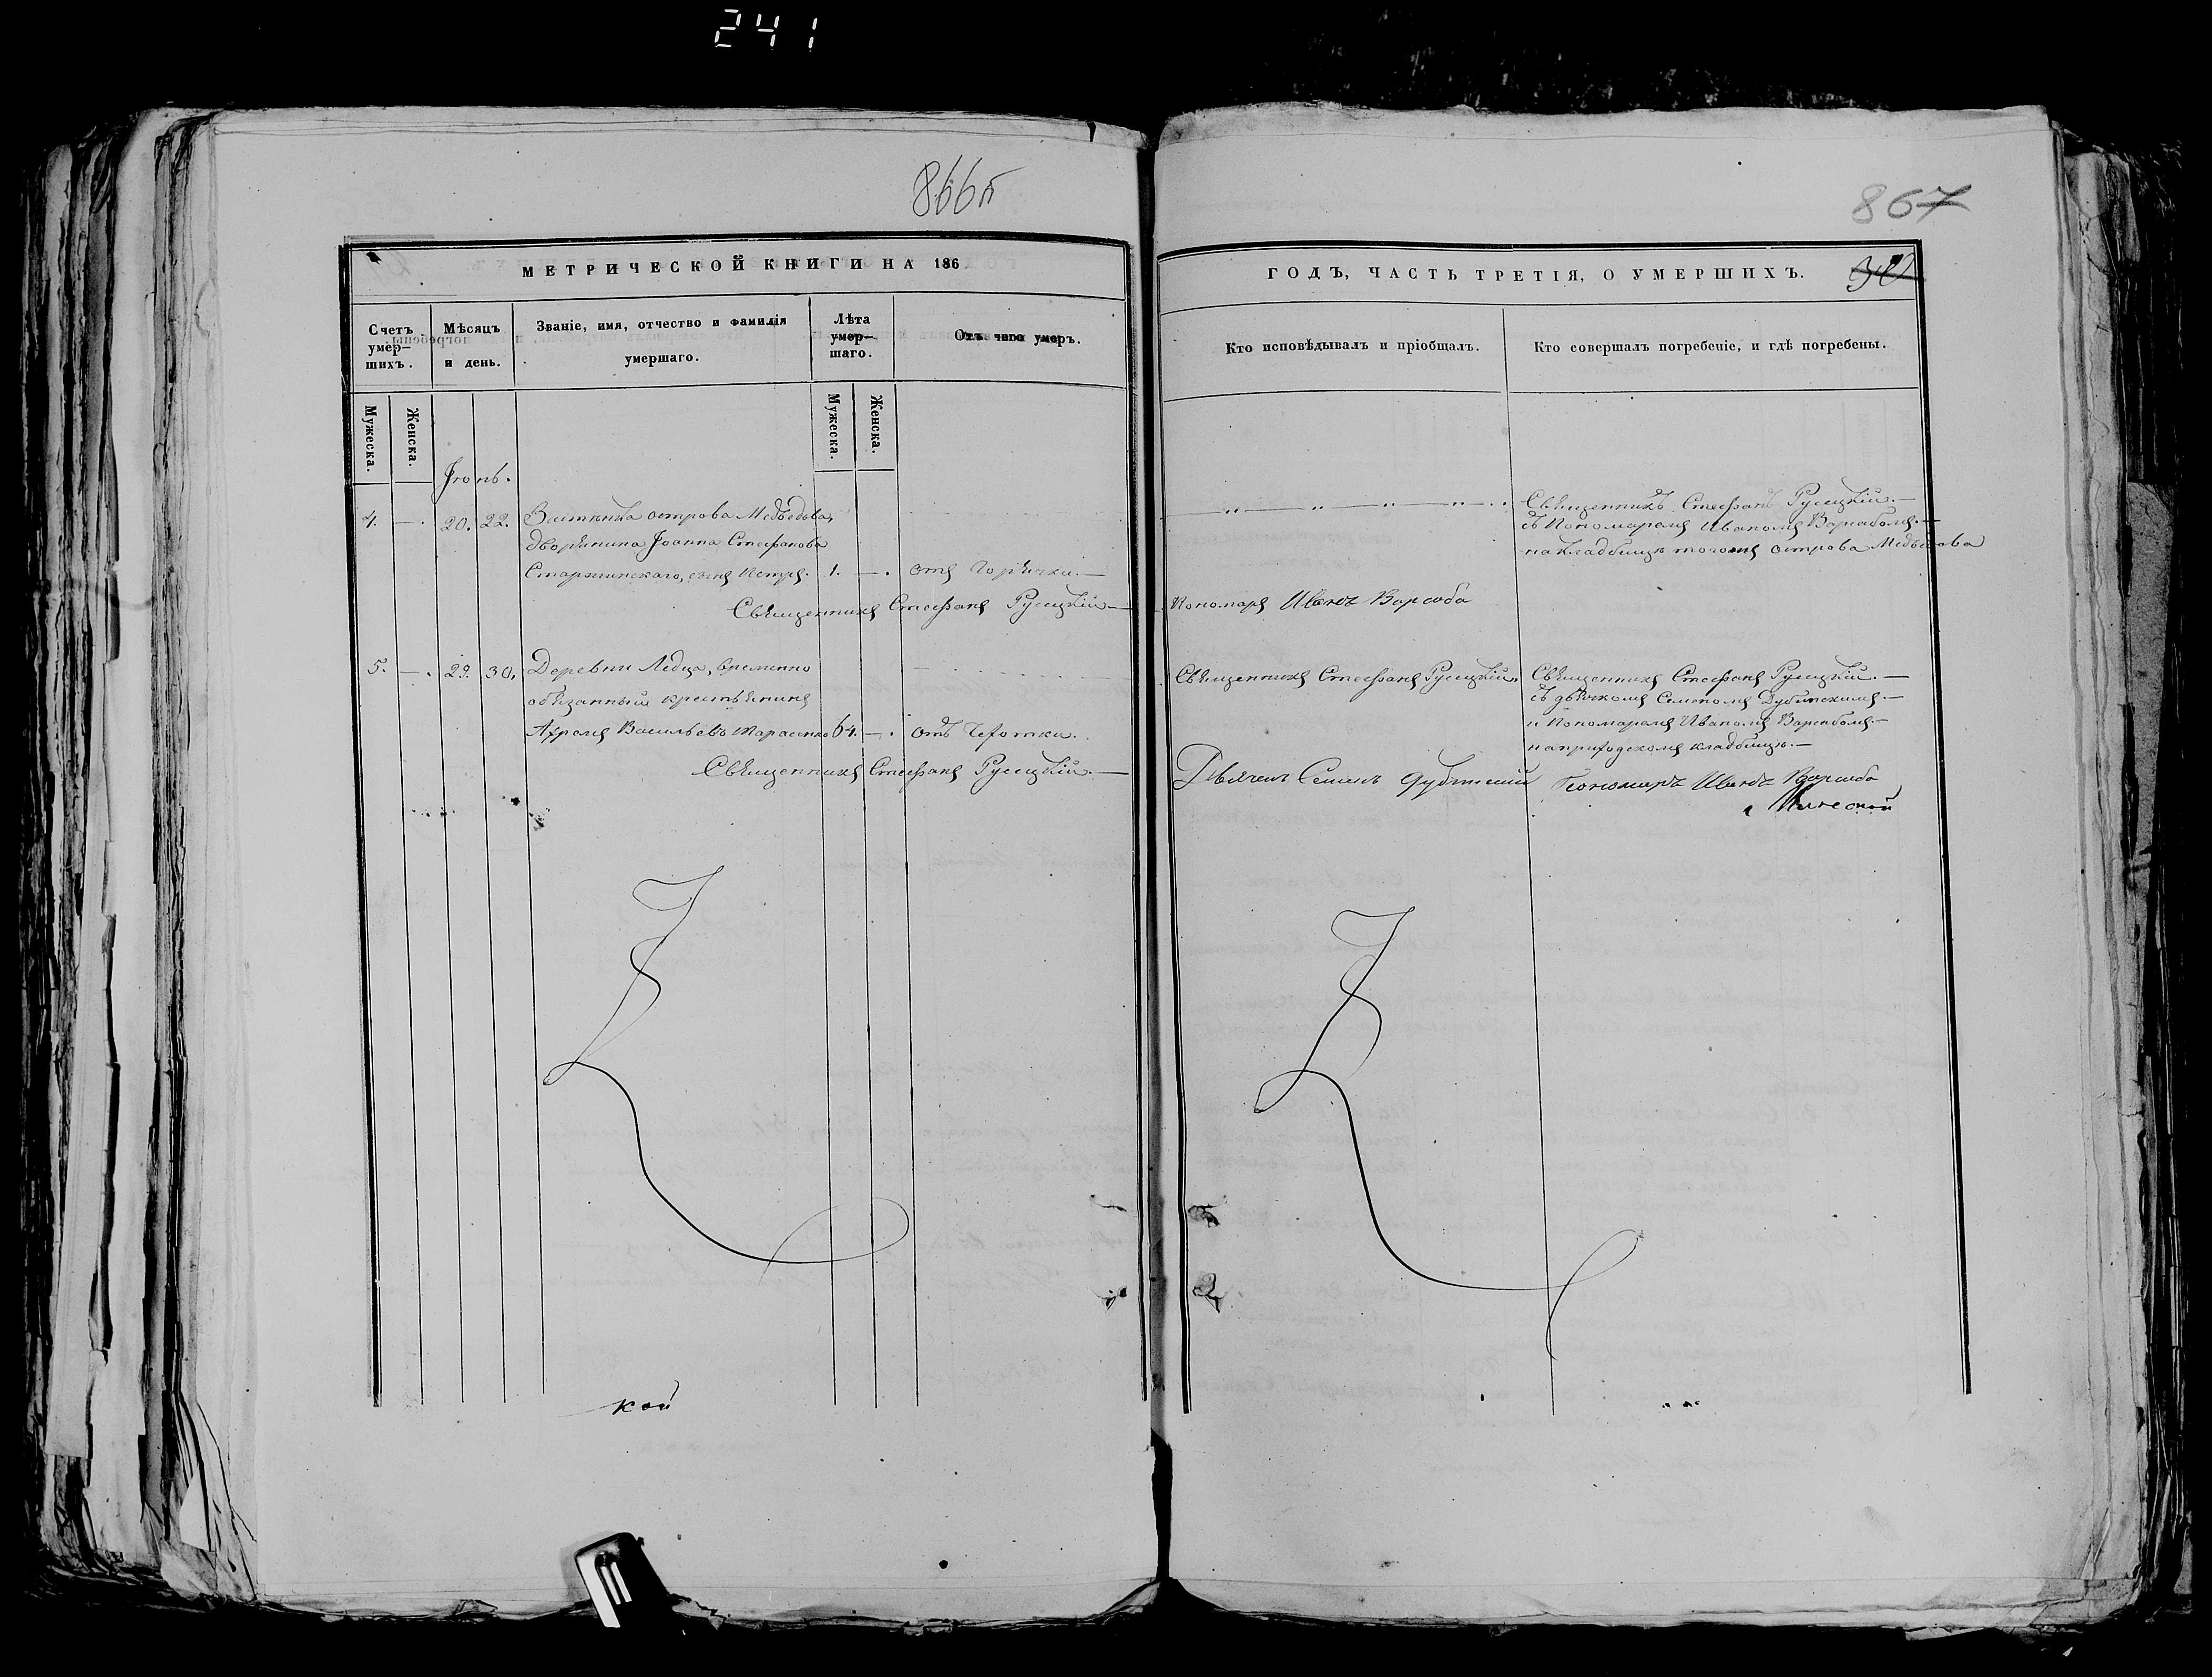 241
866п
867
МЕТРИЧЕСКОЙ КНИГИ НА 186
ГОДЪ, ЧАСТЬ ТРЕТІЯ, О УМЕРШИХЪ.
Счетъ умер-шихъ.
Мѣсяцъ и день.
Званіе, имя, отчество и фамилія умершаго.
Лѣта умер-шаго.
Отъ чего умеръ.
Кто исповѣдывалъ и пріобщалъ.
Кто совершалъ погребеніе, и гдѣ погребены.
Мужеска.
Женска.
Мужеска.
Женска.
Іюнь.
4. — 20. 22. острова Медвѣдова,
дворянина Іоанна Стефанова
сынъ Петръ. 1. — отъ горячки. —
Священникъ Стефанъ Русецкій —
Пономарь Иванъ Варивода
Священникъ Стефанъ Русецкій. —
съ Пономаремъ Иваномъ —
на кладбищѣ тогожъ острова Медвѣдова
5. — 29. 30. Деревни Ледца, временно
обязанный крестьянинъ
Васильевъ Тарасенко 64. — отъ чахотки.
Священникъ Стефанъ Русецкій. —
Священникъ Стефанъ Русецкій.
Священникъ Стефанъ Русецкій. —
съ дьячкомъ Семеномъ Дубинскимъ —
и Пономаремъ Иваномъ —
на приходскомъ кладбищѣ. —
Дьячекъ Семенъ Дубинскій
Пономарь Иванъ
кой